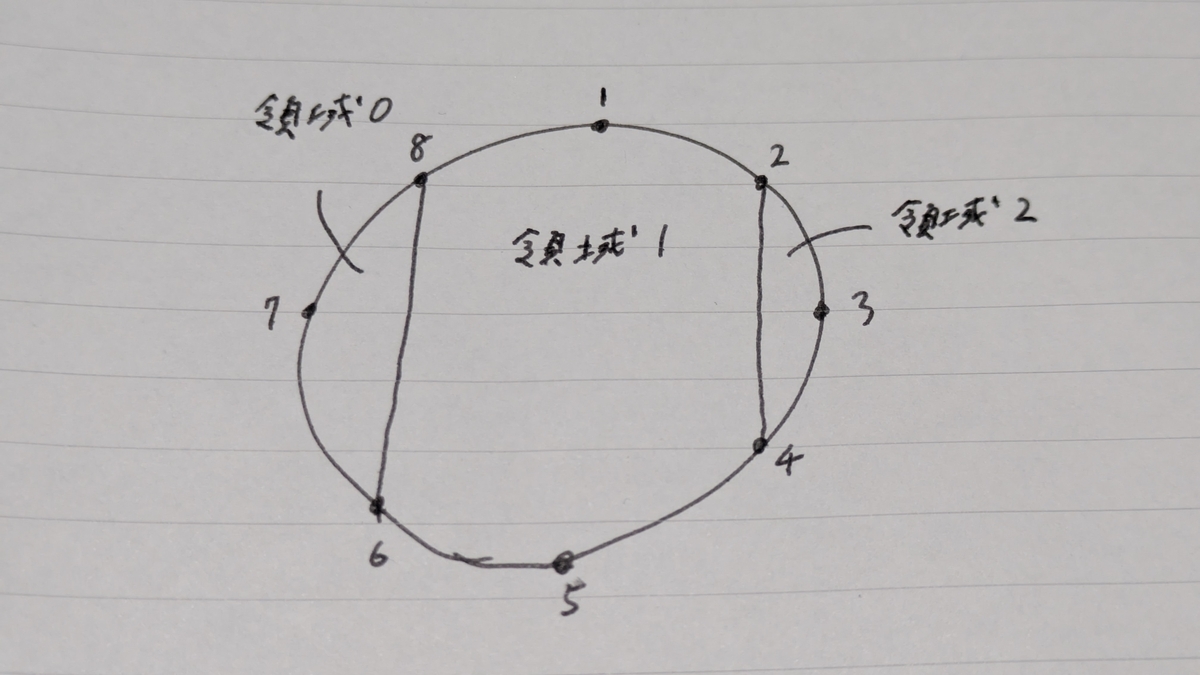 領域0
1
8
2
領域2
領域1
7
3
4
6
5